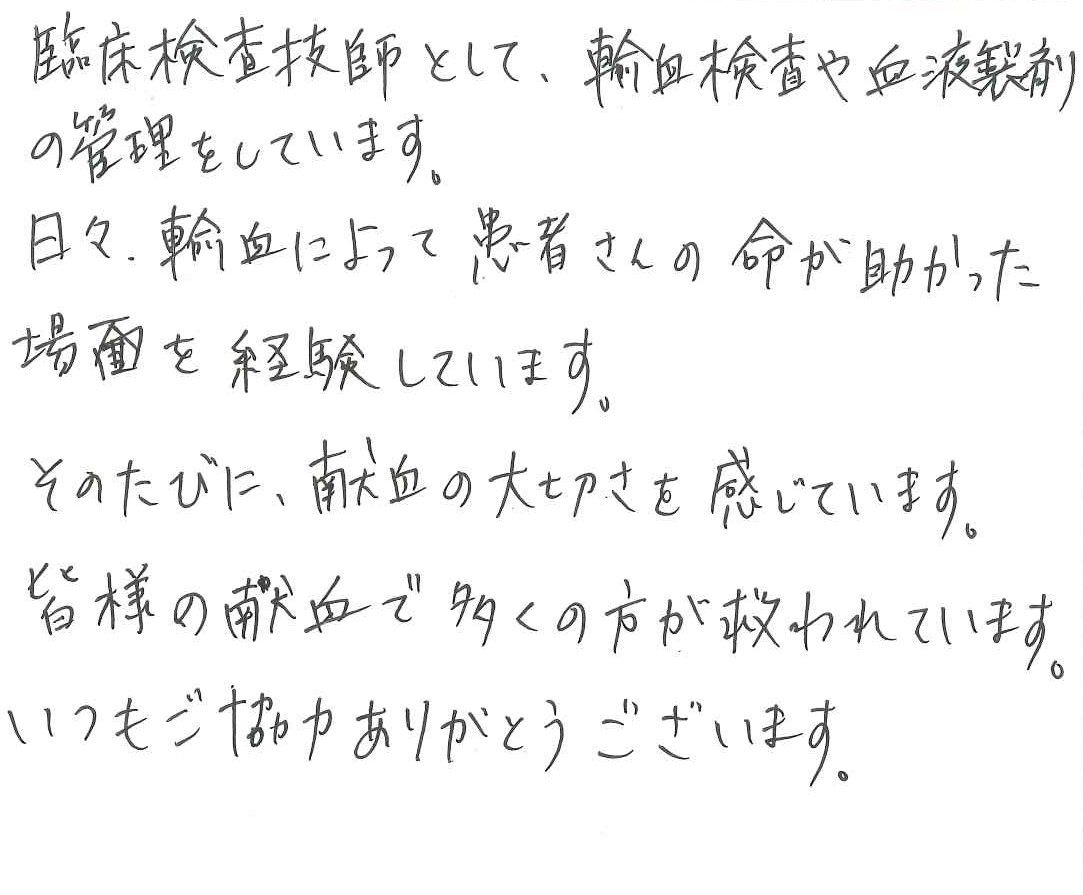 臨床検査技師として、輸血検査や血液製剤
の管理をしています。
日々、輸血によって患者さんの命が助かった
場面を経験しています。
そのたびに、献血の大切さを感じています。
皆様の献血で多くの方が救われています。
いつもご協力ありがとうございます。